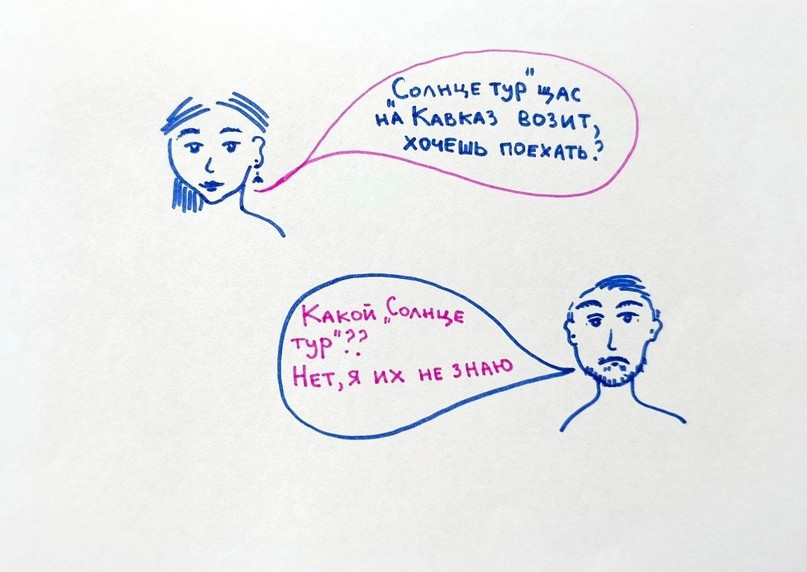 "Солнце тур" щас
на Кавказ возит,
хочешь поехать?
Какой „Солнце
тур"??
Нет, я их не знаю